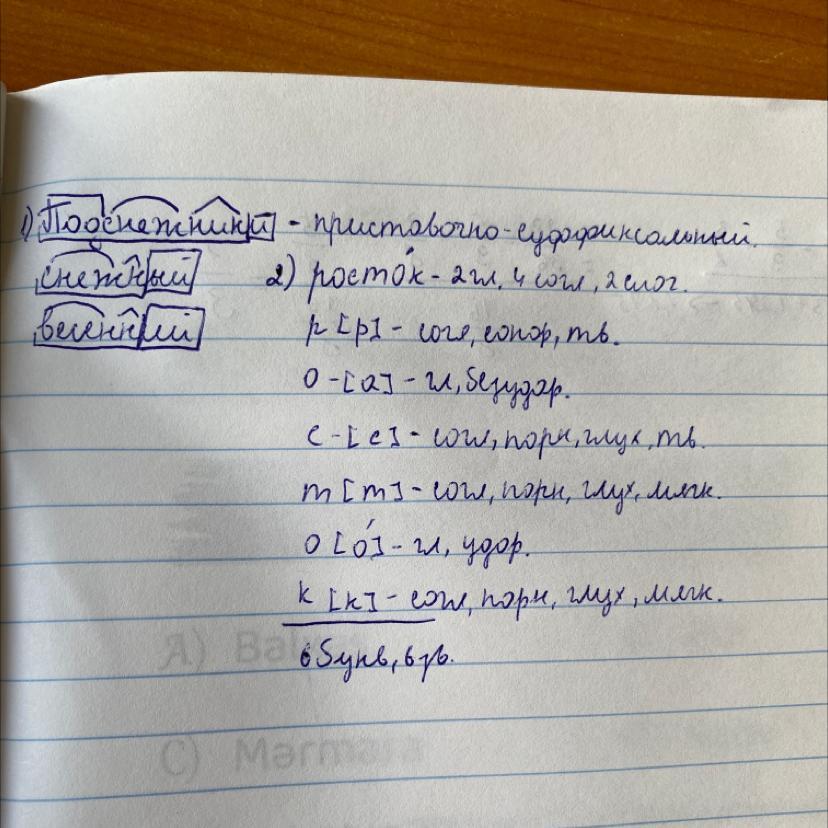 1) Подснежники - приставочно-суффиксальный.
снежный 2) росто́к - 2 гл, 4 согл, 2 слог.
весенний р [р] - согл, сонор, тв.
о - [а] - гл, безудар.
с - [с] - согл, парн, глух, тв.
т [т] - согл, парн, глух, мягк.
о [о́] - гл, удар.
к [к] - согл, парн, глух, мягк.
6 букв, 6 зв.
A) Bal
C) Mərmərə